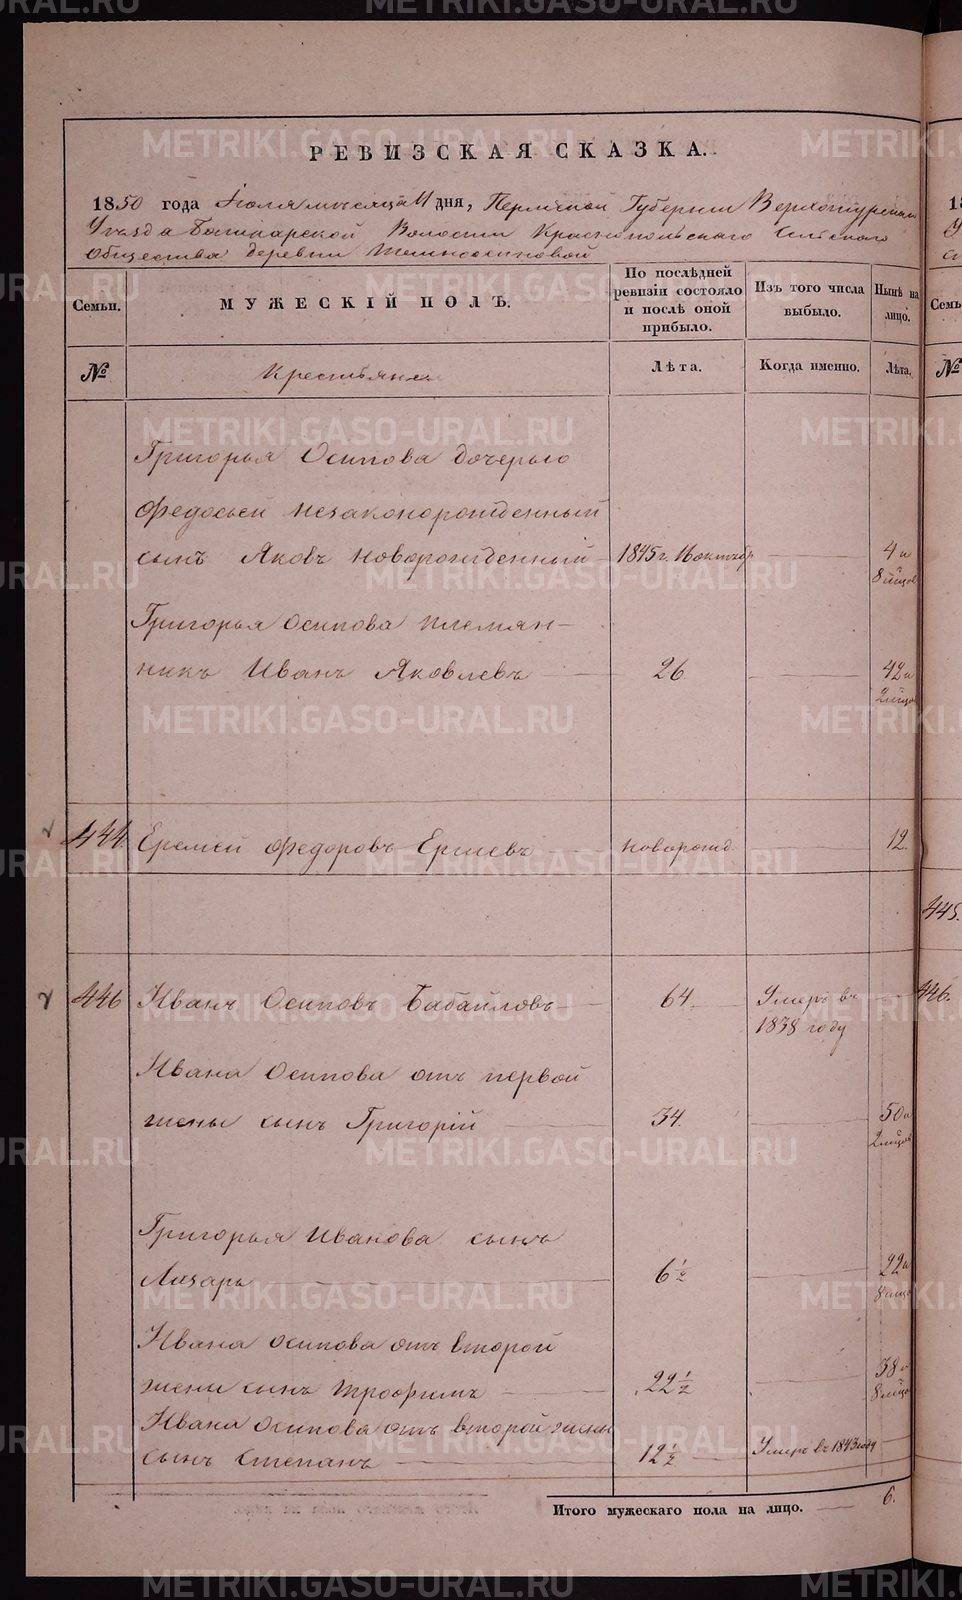 РЕВИЗСКАЯ СКАЗКА.
1850 года Іюля месяца 11 дня, Пермской Губернии Верхотурскаго
Уезда Башкарской Волости Краснопольскаго Сельскаго
Общества деревни Темноосиновой
Семьи.
МУЖЕСКІЙ ПОЛЪ.
По послѣдней ревизіи состояло и послѣ оной прибыло.
Изъ того числа выбыло.
Нынѣ на лицо.
Семь
№
Крестьяне
Лѣта.
Когда именно.
Лѣта.
№
Григорья Осипова дочерью
Федосьей незаконорожденный
сынъ Яковъ новорожденный 1845 г. 16 октябр 4 и
8 мѣцов
Григорья Осипова племян-
никъ Иванъ Яковлевъ 26 42 и
2 мѣцов
444. Еремей Федоровъ Ершевъ новорожд. 12.
445.
446 Иванъ Осиповъ Бабайловъ 64 Умеръ въ 446.
1838 году
Ивана Осипова отъ первой
жены сынъ Григорій 34. 50 и
2 мѣцов
Григорья Иванова сынъ
Лазарь 6 ½ 22 и
8 мѣцо
Ивана Осипова отъ второй
жены сынъ Трофимъ 22 ½ 38 и
8 мѣцо
Ивана Осипова отъ второй жены
сынъ Степанъ 12 ½ Умеръ въ 1843 году
Итого мужескаго пола на лицо. 6.
METRIKI.GASO-URAL.RU